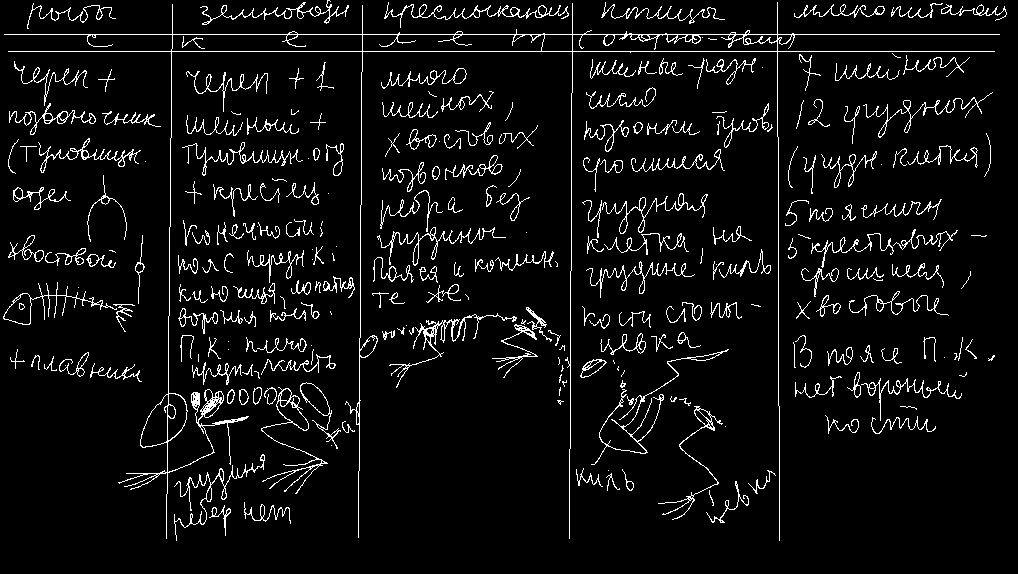 рыбы
земноводн
пресмыкающ
птицы
млекопитающ
с к е л е т (опорно-двиг)
череп +
позвоночник
(туловищн.
отдел
хвостовой
+ плавники
череп + 1
шейный +
туловищн. отд
+ крестец.
Конечности:
пояс передн К:
ключица, лопатка
воронья кость.
П.К: плечо,
предпл, кисть
таз
грудина
ребер нет
много
шейных,
хвостовых
позвонков,
ребра без
грудиног
Пояса и конечн.
те же.
шейные-разн.
число
позвонки тулов.
сросшиеся
грудная
клетка, на
грудине киль
кости стопы -
цевка
киль
цевка
7 шейных
12 грудных
(грудн. клетка)
5 поясничн
5 крестцовых -
сросшиеся,
хвостовые
В поясе П.К.
нет вороньей
кости